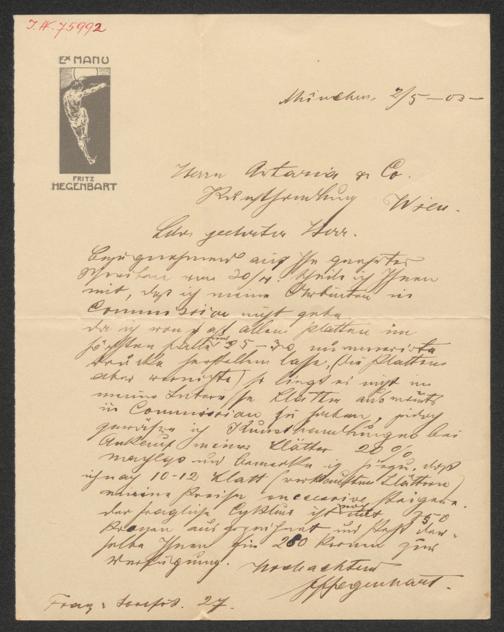 I.N. 75992
EX MANU
FRITZ
HEGENBART
München, 2/5 – 03 –
Herrn Artaria & Co.
Kunsthandlung Wien.
Sehr geehrter Herr.
Bezugnehmend auf Ihr geehrtes
Schreiben vom 30/4. theile ich Ihnen
mit, daß ich meine Arbeiten in
Commission nicht gebe
da ich von allen Platten im
höchsten Falle 25–30 nummerirte
Drucke herstellen lasse, (die Platten
aber vernichte) so liegt es nicht in
meinem Interesse Blätter auswärts
in Commission zu haben, jedoch
gewähre ich Kunsthandlungen bei
Ankauf meiner Blätter 20%
und bemerke ich hiezu, daß
ich nach 10–12 Blatt (verkauften Blättern)
meine Preise successive steigere.
Der fragliche Cyklus ist mit 350
Kronen ausgezeichnet und steht der-
selbe Ihnen für 280 Kronen zur
Verfügung.
Hochachtend
FHegenbart.
27.